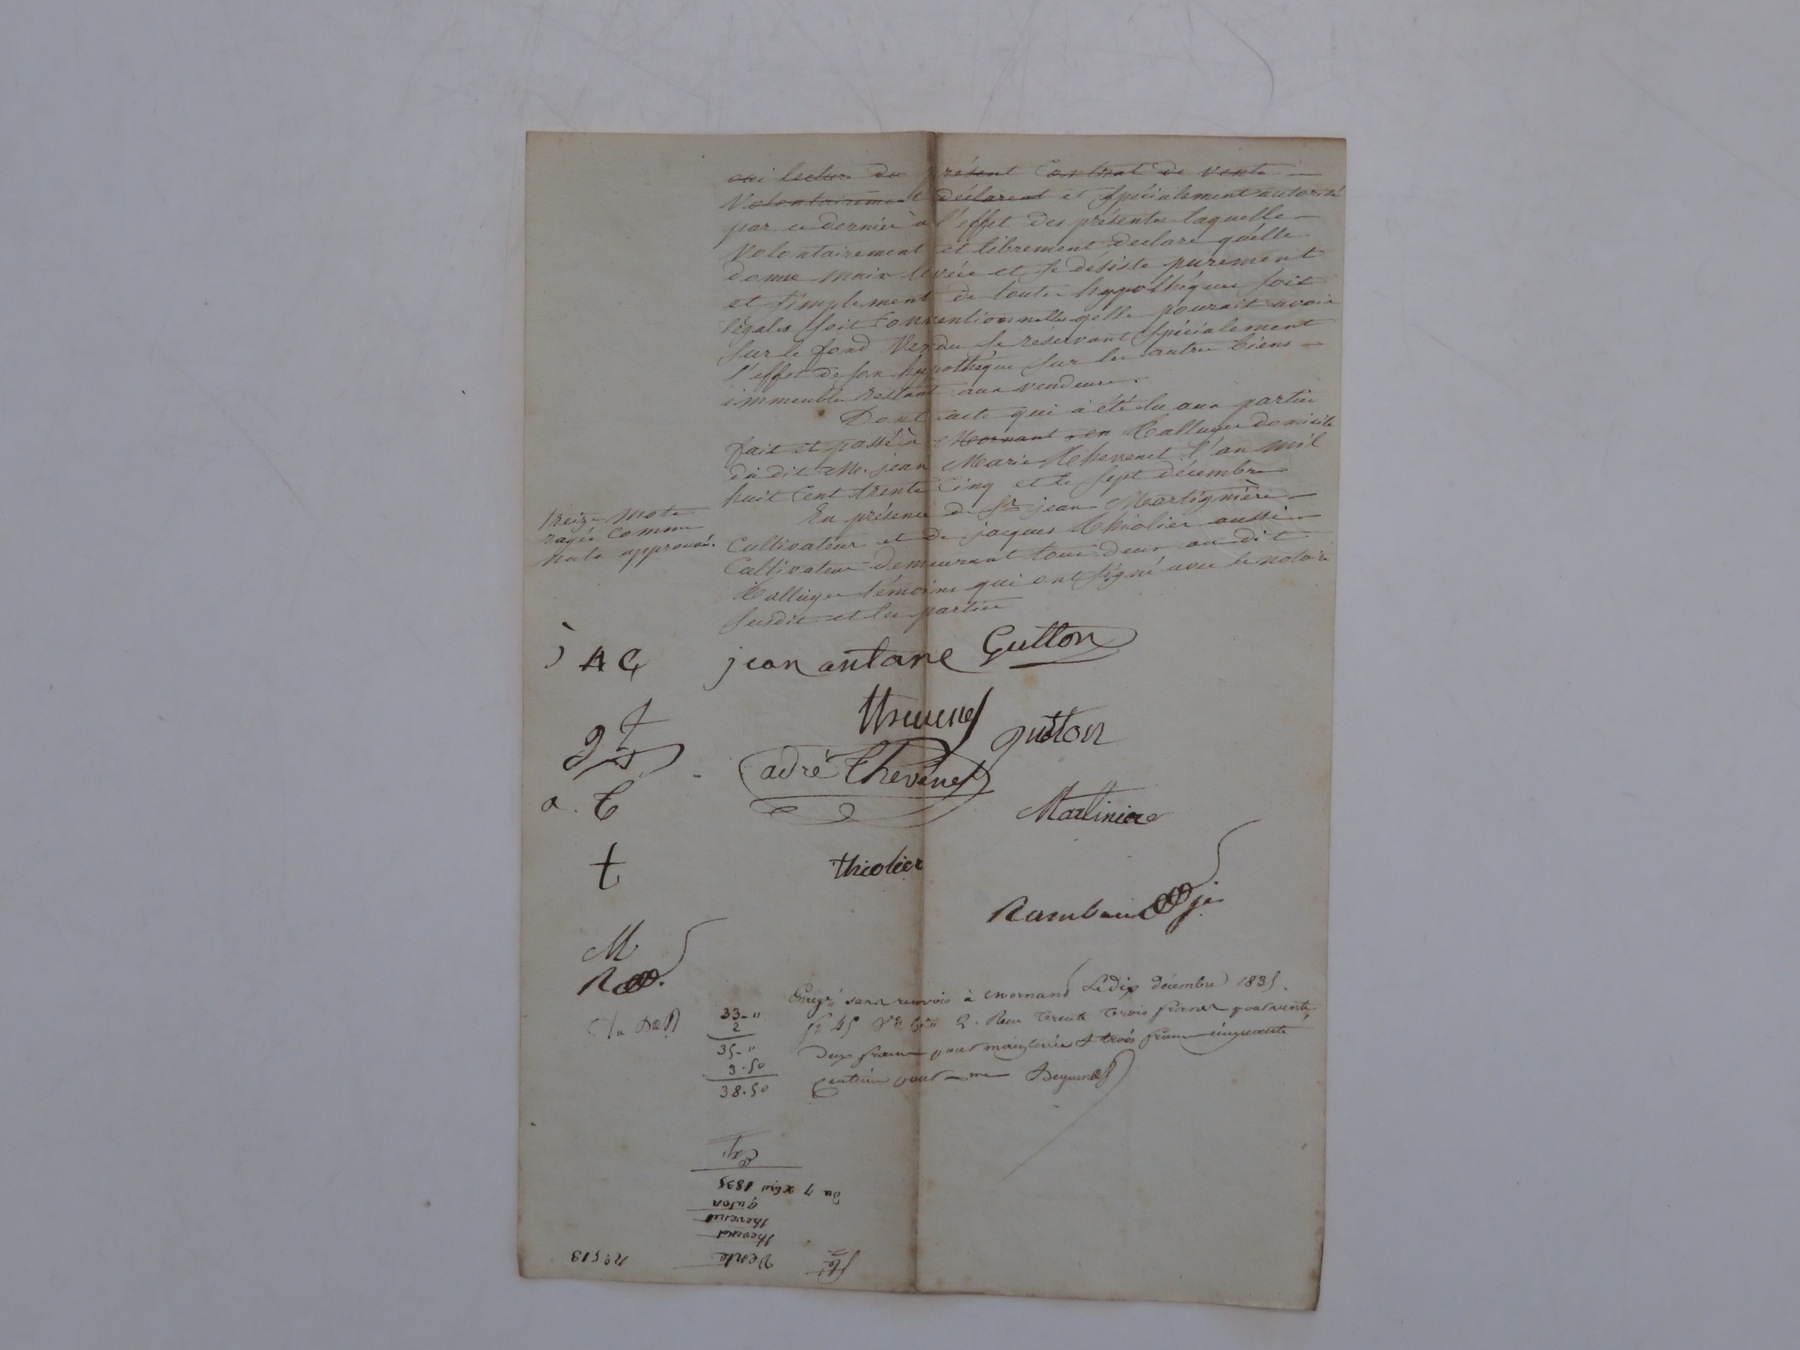 oui lecture du présent Contrat de vente
Volontairement déclarent et spécialement autorisé
par ce dernier à l'effet des présentes laquelle
Volontairement et librement declare qu'elle
donne main levée et se désiste purement
et simplement de toute hypothéque soit
légales soit Conventionnelle qelle pourait avoir
sur le fond Vendu se réservant spécialement
l'effet de son hypothéque sur les autres biens
immeubles restant aux vendeurs.
Dont acte qui à été lu aux parties
fait et passé à Mornant en Talluyer domicile
du dit M. jean Marie Thevenet l'an mil
huit Cent trente Cinq et le sept décembre
En présence de Sr jean Martignière
Cultivateur et de jacques Thiolier aussi
Cultivateur demeurant tous deux au dit
Talluyer témoins qui ont signé avec le notaire
susdit et les parties
treize mots
rayés comme
nuls approuvés.
j A G jean antoine Gutton
thevenet
gutton
adré thevenet
a. T
Martiniere
t thiolier
Rambaud je
M
R
Enregé sans renvois à Mornant Le dix décembre 1835.
fo 45 Vo Ces 2. Reçu trente trois francs pour vente,
deux francs pour mainlevée & trois francs cinquante
Centimes pour
33-"
2
35-"
3.50
38.50
No 513
Vente
thevenet
thevenet
guton
du 7 xbre 1835
Exp.